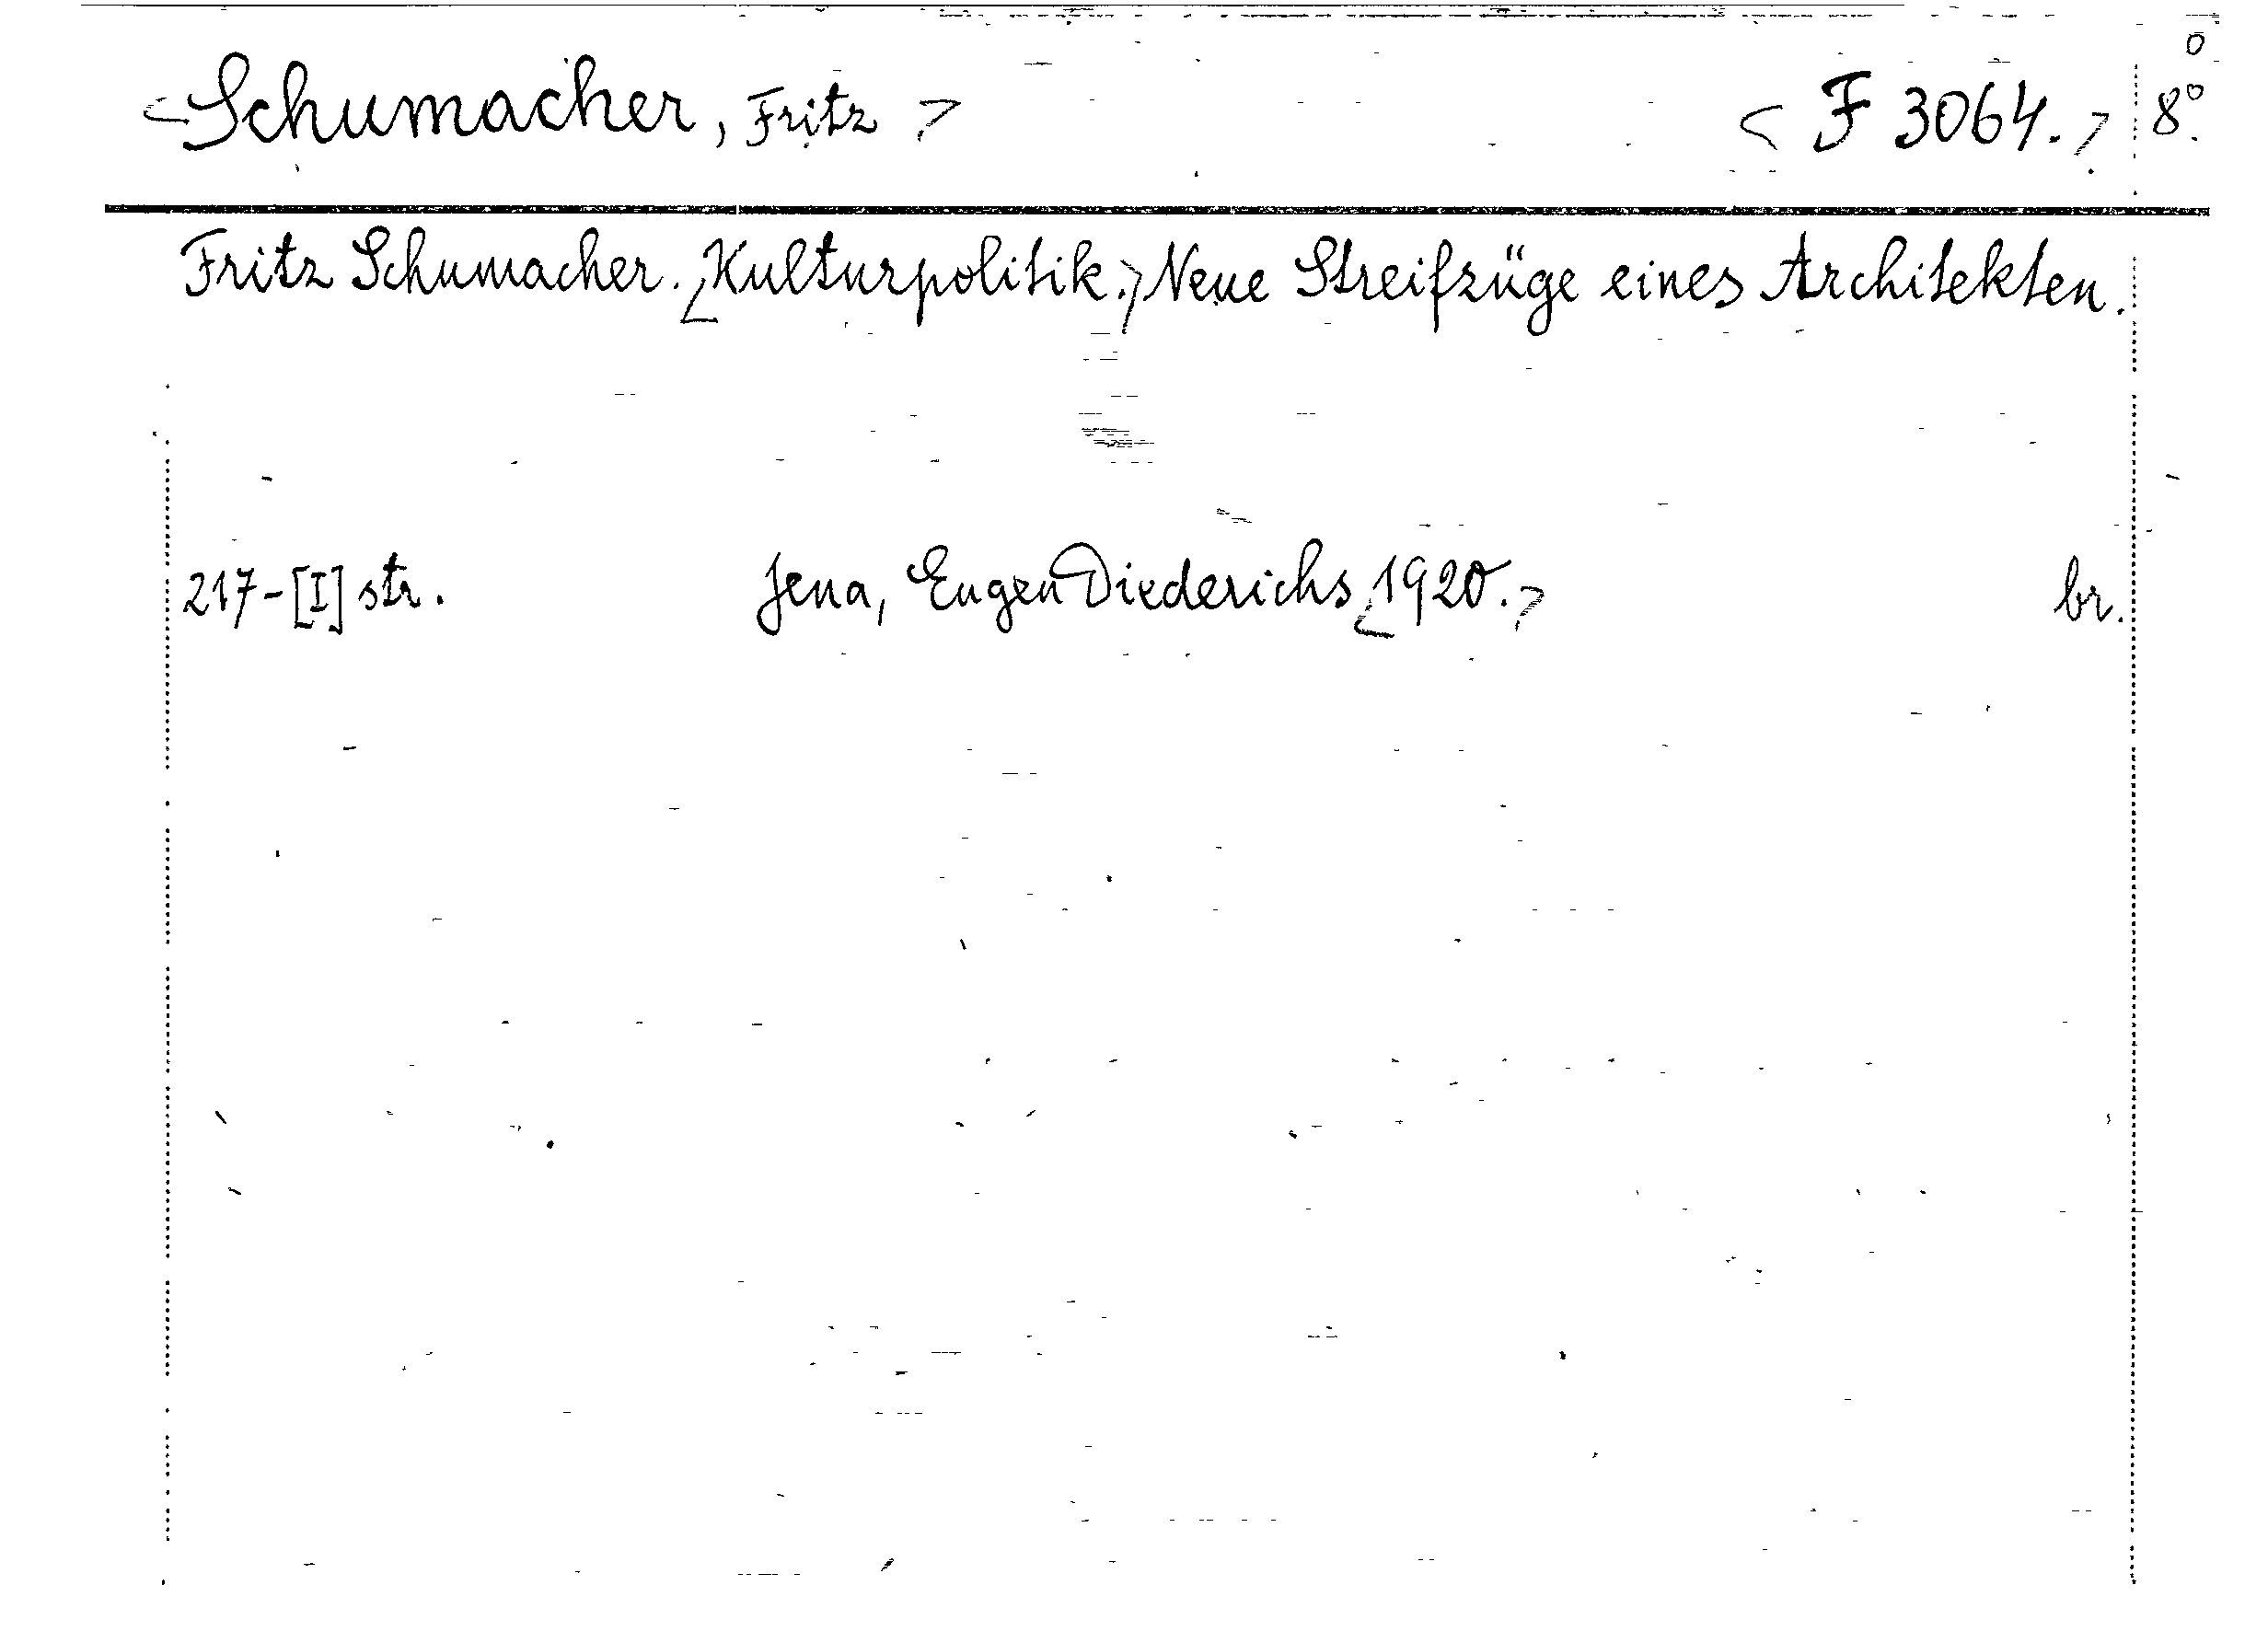 <Schumacher, Fritz> <F 3064.> 8°.
Fritz Schumacher. <Kulturpolitik.> Neue Streifzüge eines Architekten.
217-[I] str. Jena, Eugen Diederichs <1920.> br.